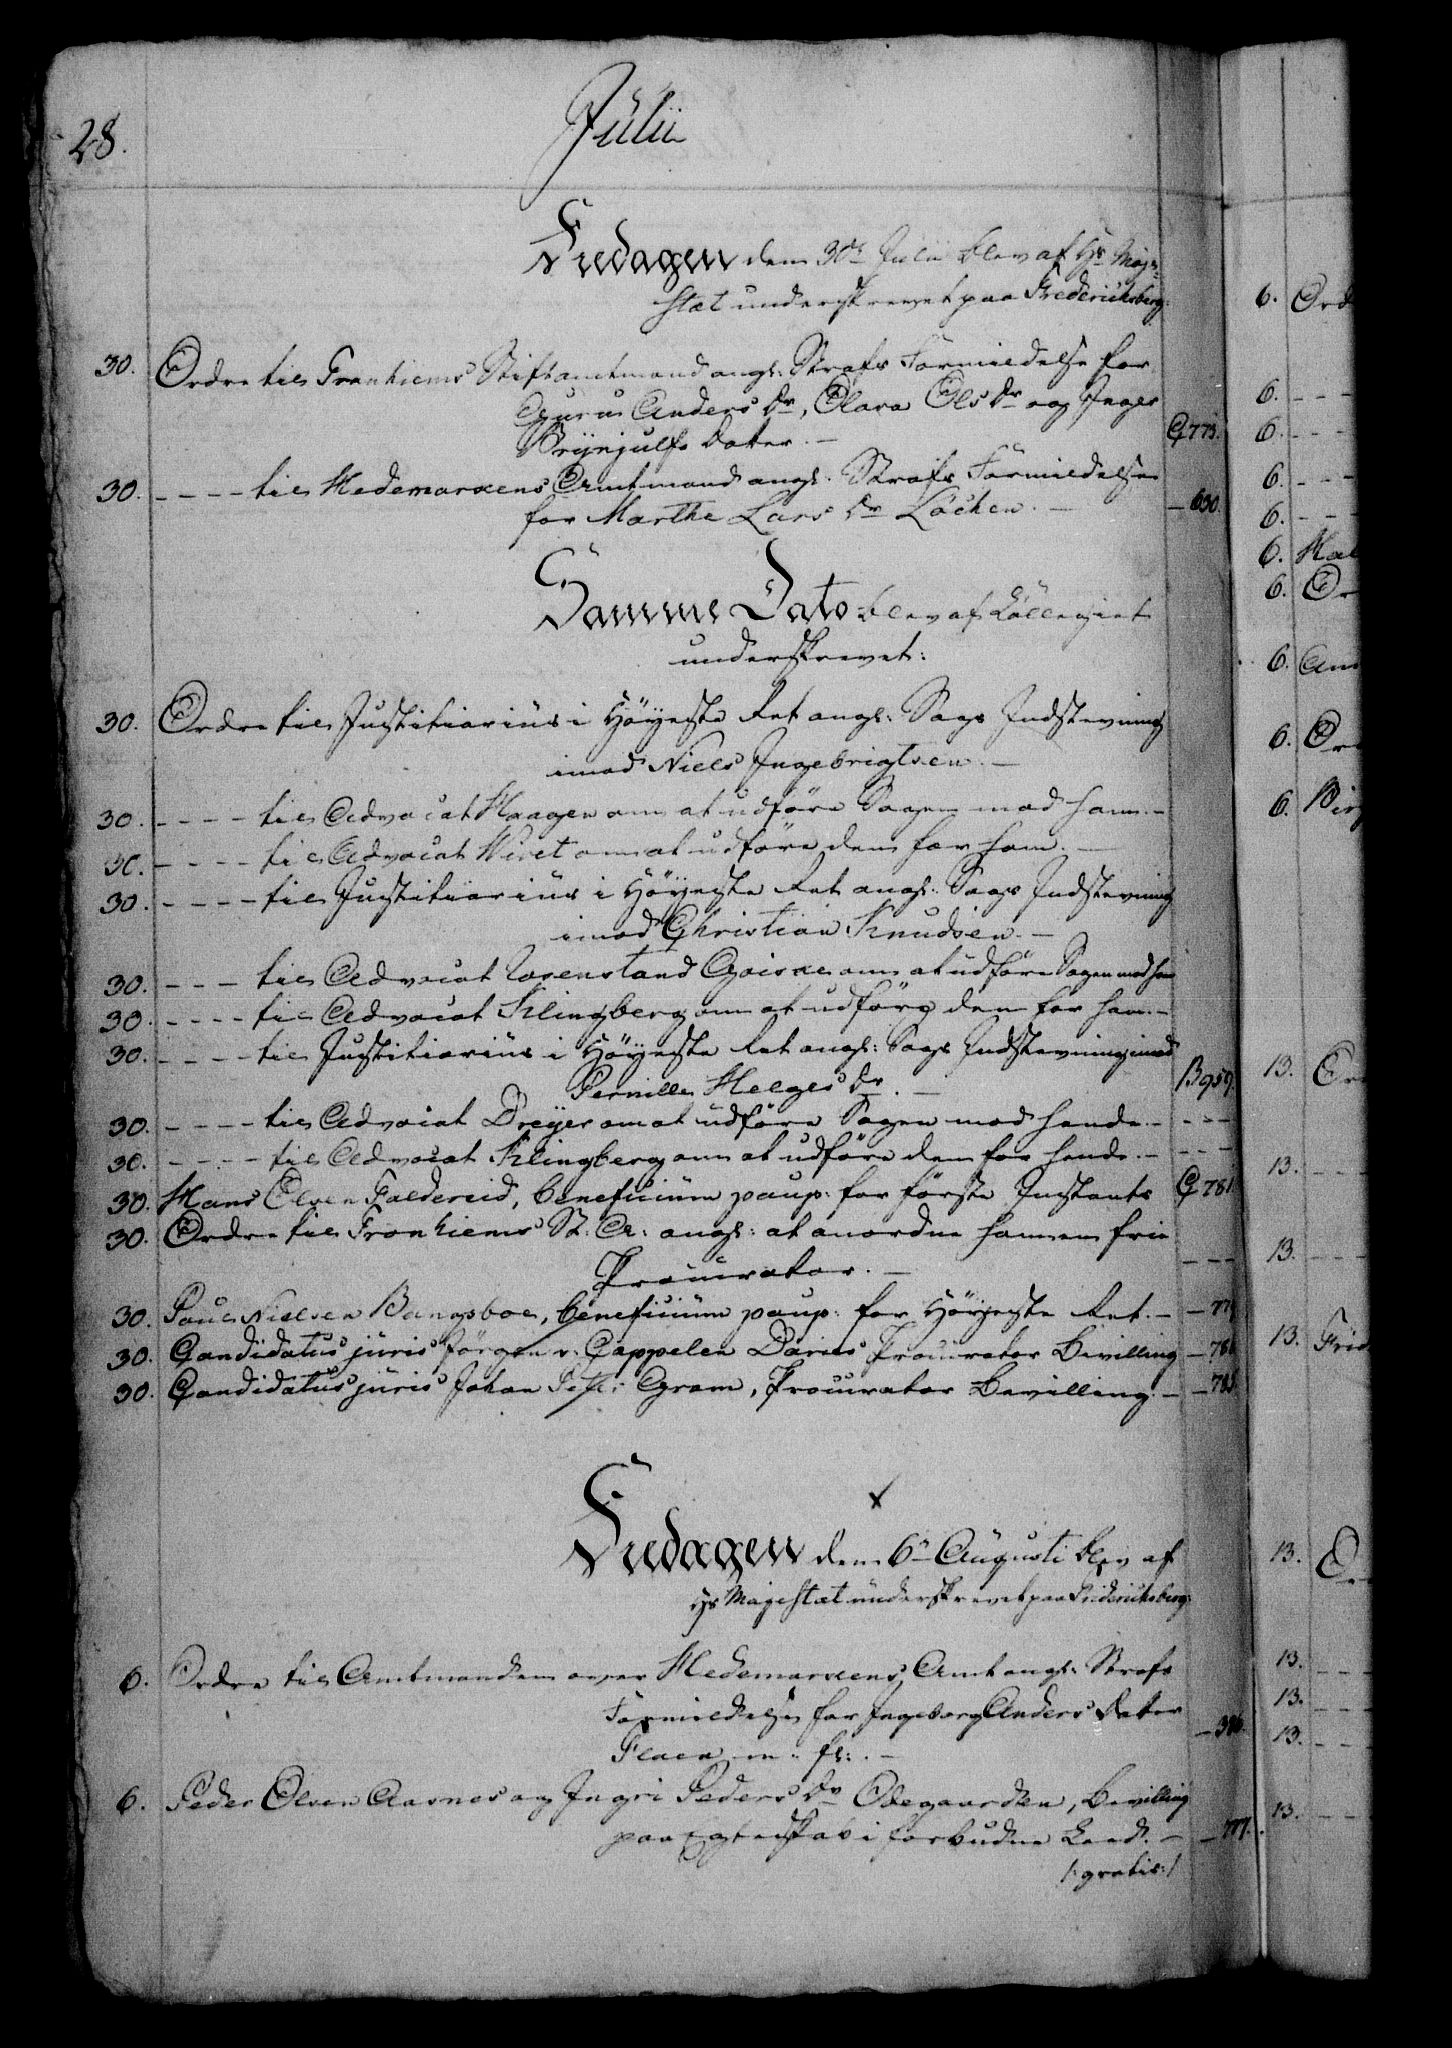 28.
Julii
Fredagen dem 30te Julii blev af Hs Maje-
stæt underskrevet paa Frederichsberg.
30. Ordre til Tronhiems Stiftamtmand angl: Strafs Formildelse for
Guru Anders Dr, Olava Ols Dr og Inger
Brynjulfs Datter. — G 773.
30. - - - - til Hedemarkens Amtmand angl: Strafs Formildelse
for Marthe Lars Dr Löcken. — — 630.
Samme Dato blev af Collegiet
underskrevet:
30. Ordre til Justitiarius i Höyeste Ret angl: Sags Indstevning
imod Niels Ingebrigtsen. —
30. - - - - til Advocat Haagen om at udföre Sagen mod ham. —
30. - - - - til Advocat Wivet om at udföre dem for ham. —
30. - - - - til Justitiarius i Höyeste Ret angl: Sags Indstevning
imod Christian Knudsen. —
30. - - - til Advocat Rosenstand Goiske om at udföre Sagen mod ham
30. - - - - til Advocat Klingberg om at udföre dem for ham. —
30. - - - - til Justitiarius i Höyeste Ret angl: Sags Indstevning imod
Pernille Helges Dr. — B 959.
30. - - - - til Advocat Dreyer om at udföre Sagen mod hende. — - - -
30. - - - - til Advocat Klingberg om at udföre dem for hende. — - - -
30. Hans Olsen Faldereid, beneficium paup: for förste Instants G 781.
30. Ordre til Tronhiems St: A: angl: at anordne hannem frie
Procurator. — - - -
30. Poul Nielsen Bangsboe, beneficium paup: for Höyeste Ret. —
30. Candidatus juris Jörgen v: Cappelen Darius Procurator Bevilling
30. Candidatus juris Johan Gram, Procurator Bevilling. — — 785.
Fredagen dem 6te Augusti blev af
Hs Majestæt underskrevet paa Friderichsberg.
6. Ordre til Amtmanden over Hedemarkens Amt angl: Strafs
Formildelse for Ingeborg Anders Datter
m: fl: . —
6. Peder Olsen Aasnes og Ingri Peders Dr Ödegaarden, Bevilling
paa Egteskab i forbudne Leed. — — 777.
/: gratis :/
6. Ord
6. - - -
6. - - -
6. - - -
6. - - -
6.
6. Or
6.
6. Or
6.
13. Or
13. - - -
13. - - -
13. Frid
13.
13. - - -
13. - - -
13. - - -
13. - - -